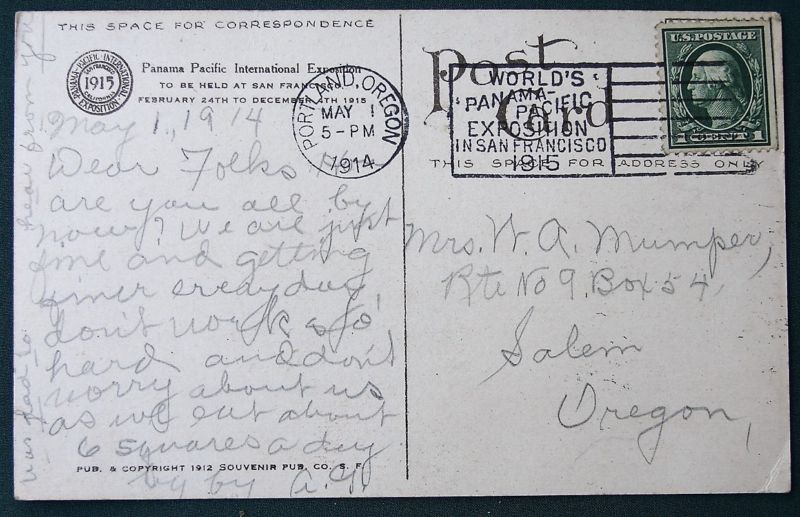 THIS SPACE FOR CORRESPONDENCE
PANAMA-PACIFIC INTERNATIONAL EXPOSITION
SAN FRANCISCO
1915
CALIFORNIA
Panama Pacific International Exposition
TO BE HELD AT SAN FRANCISCO
FEBRUARY 24TH TO DECEMBER 4TH 1915
May 1, 1914
Dear Folks
are you all by
now? We are just
fine and getting
finer every day
don't work so
hard and don't
worry about us
as we eat about
6 squares a day
by by A.
was glad to hear from you
PUB. & COPYRIGHT 1912 SOUVENIR PUB. CO. S. F.
PORTLAND, OREGON
MAY 1
5-PM
1914
Post Card
WORLD'S
PANAMA-
PACIFIC
EXPOSITION
IN SAN FRANCISCO
1915
U.S. POSTAGE
1 CENT 1
THIS SPACE FOR ADDRESS ONLY
Mrs. W. A. Mumper,
Rte No 9, Box 54,
Salem
Oregon,